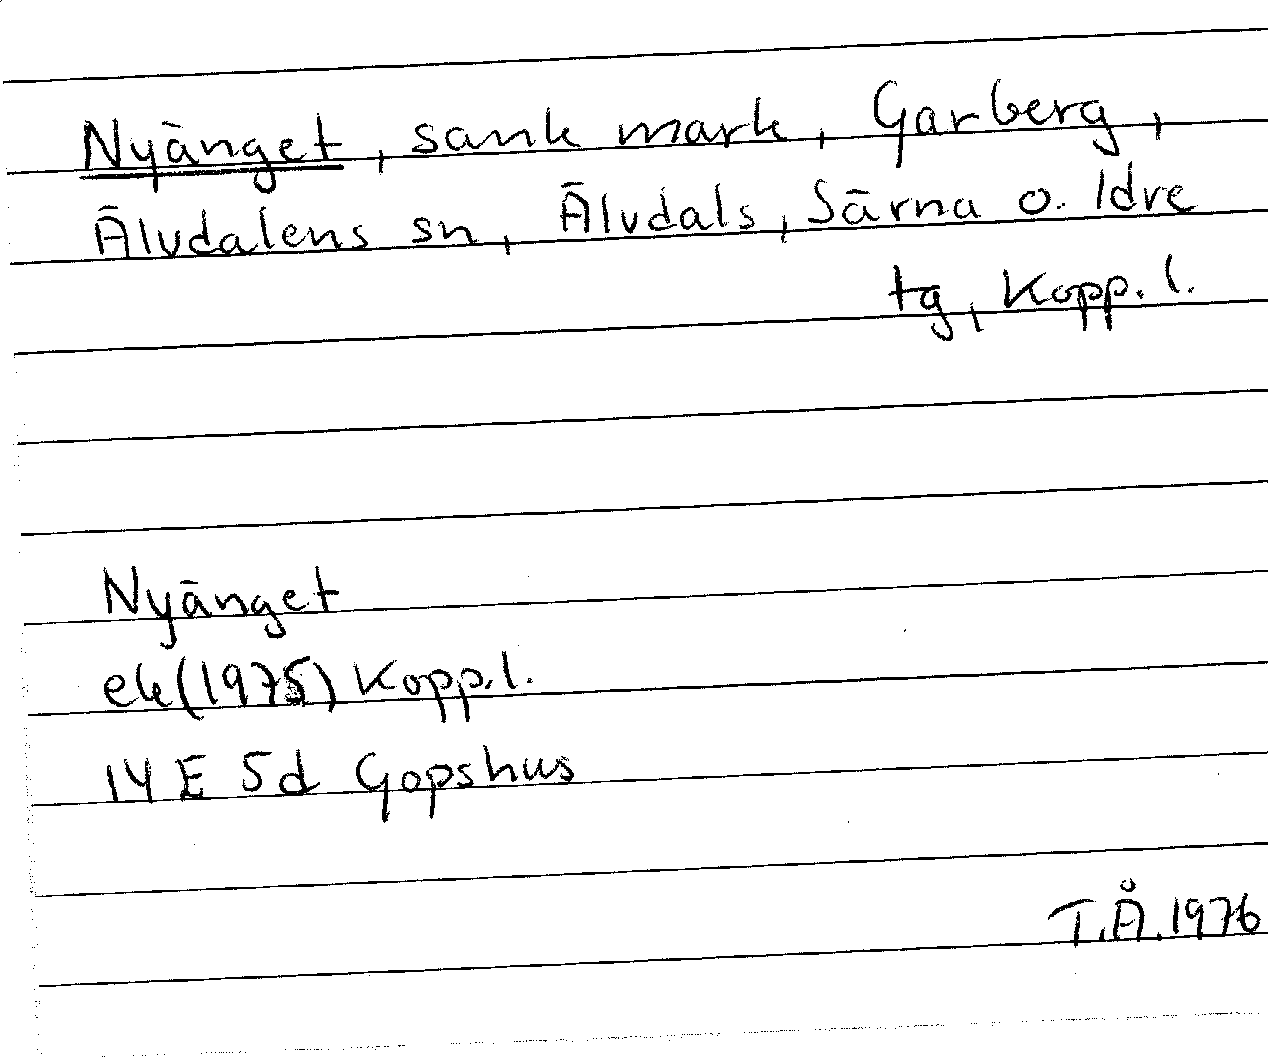 Nyänget, sank mark, Garberg,
Älvdalens sn, Älvdals, Särna o. Idre
tg, Kopp. l.
Nyänget
ek (1975) Kopp.l.
14 E 5d Gopshus
T.Å.1976